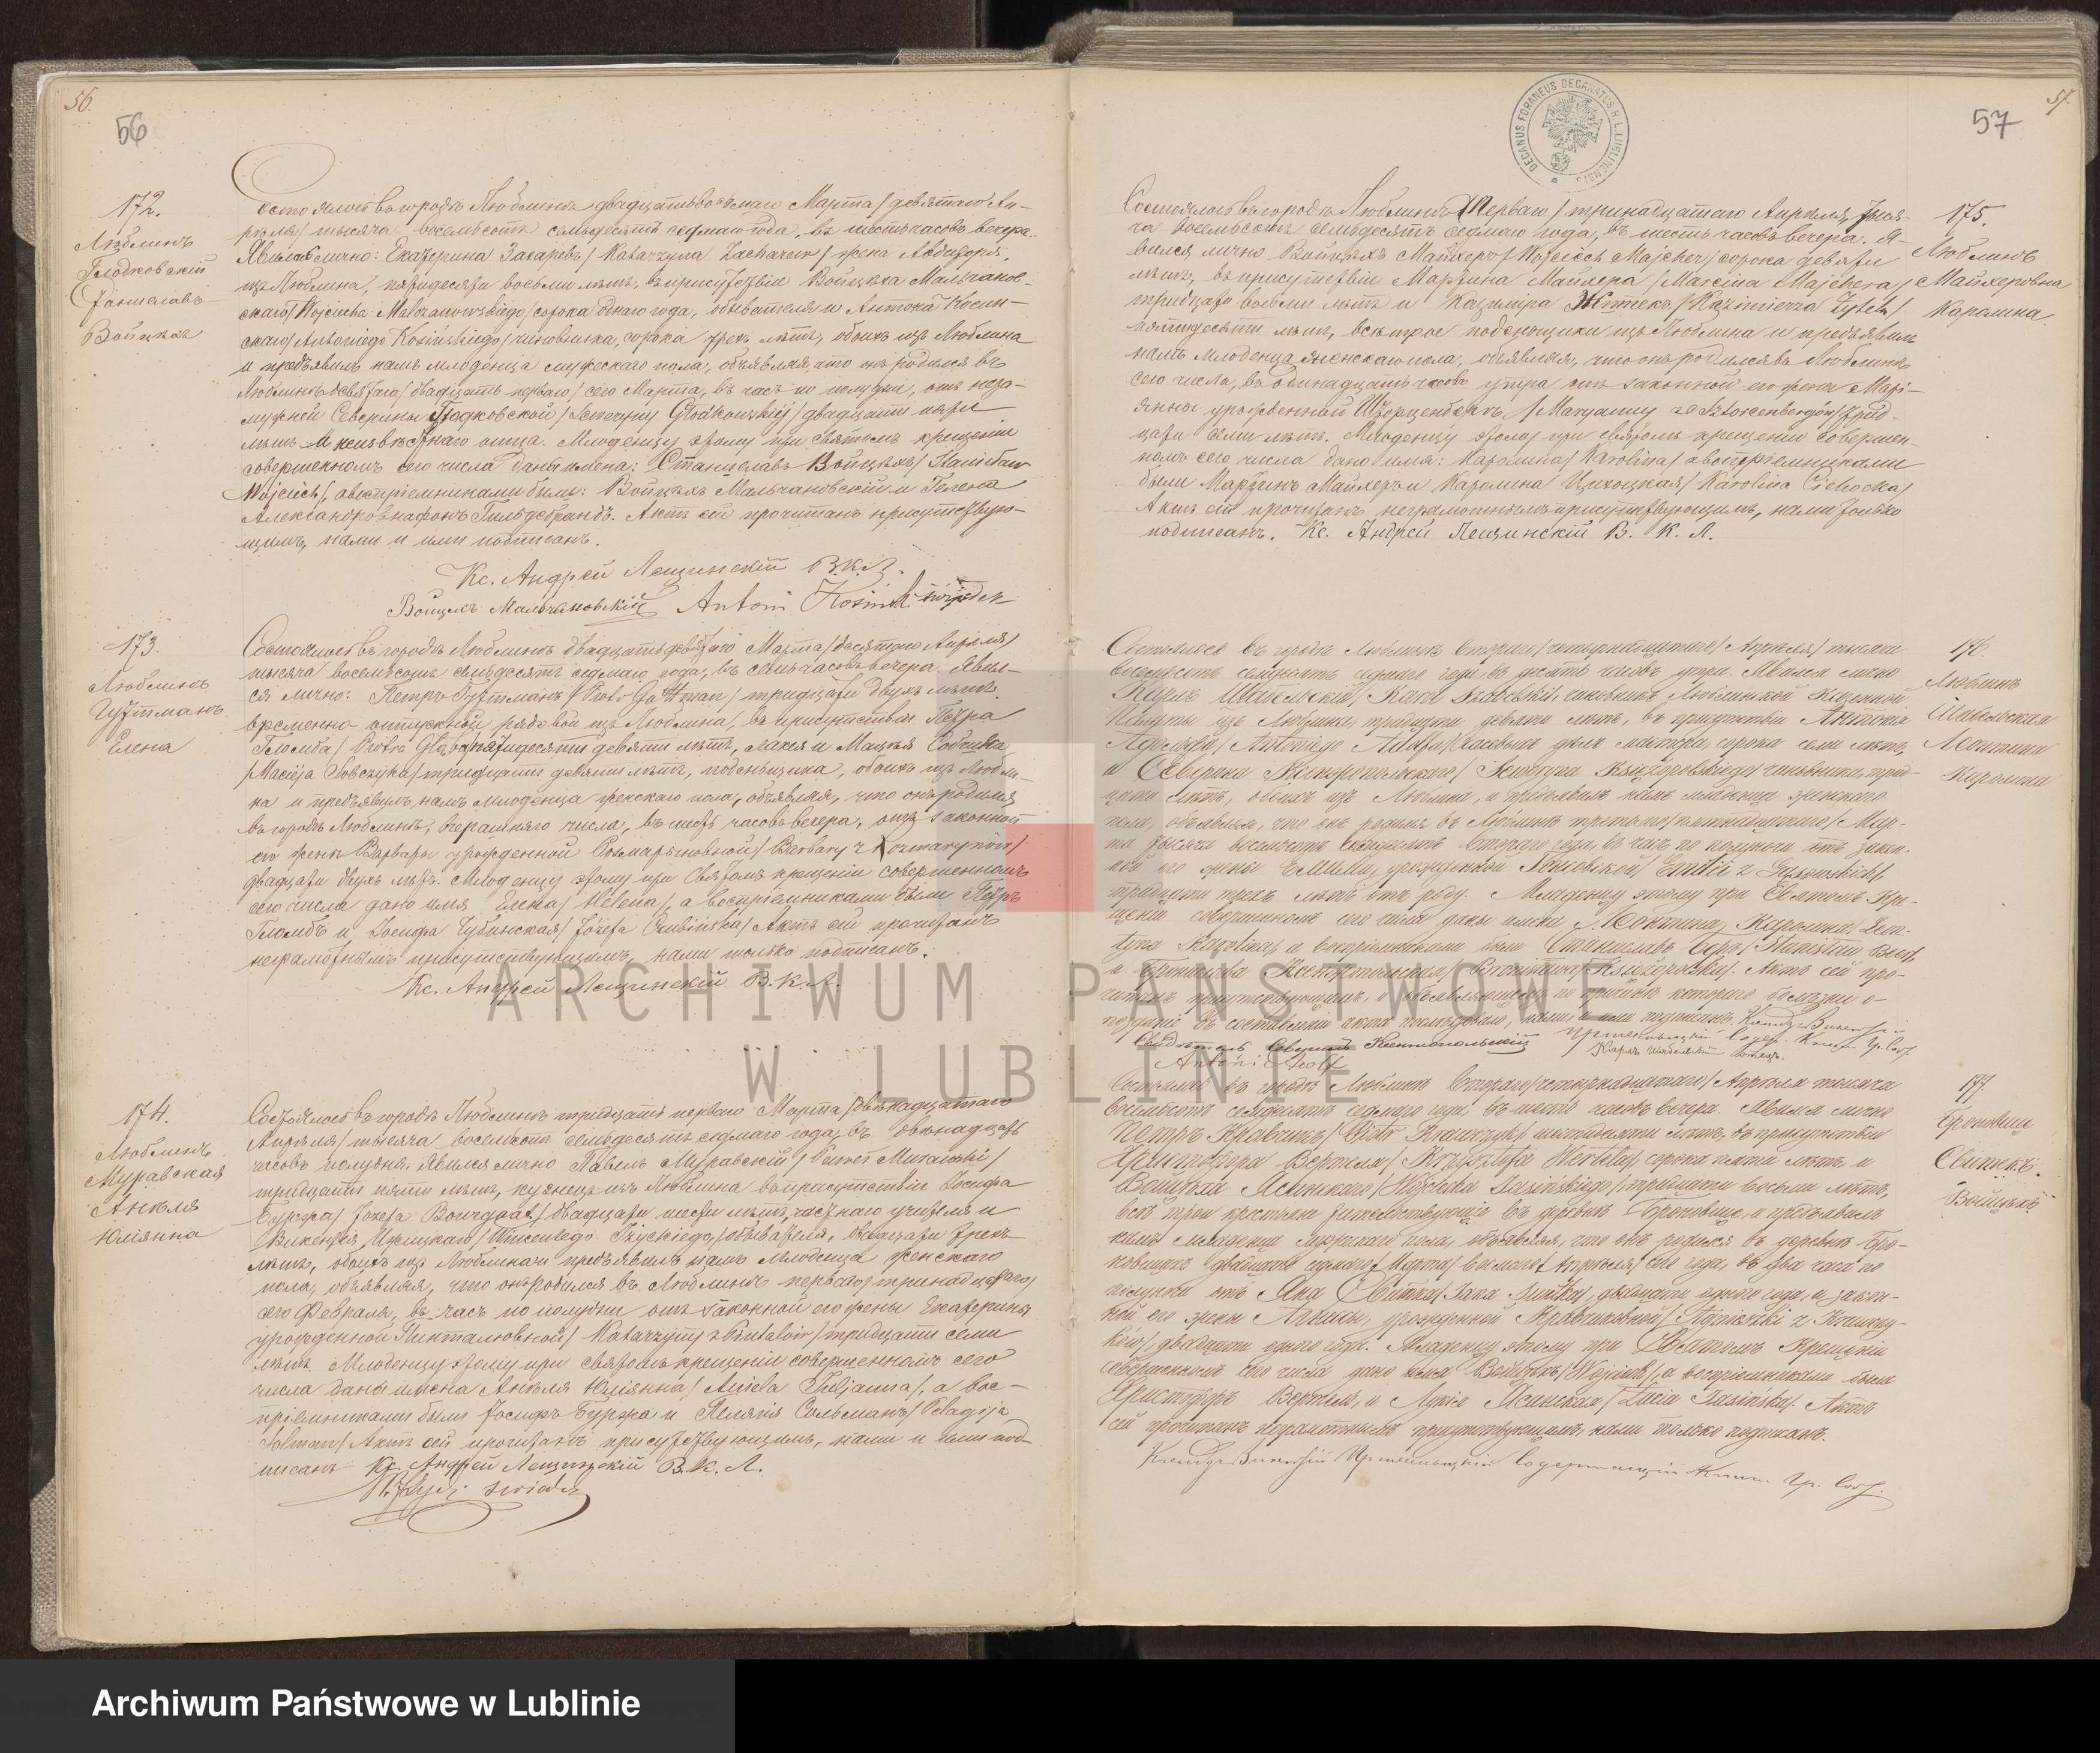 56.
56
172.
Люблинъ
Глодковскій
Станиславъ
Войцехъ
Состоялось въ городѣ Люблинѣ двадцать восьмаго Марта / девятаго Ап-
рѣля / тысяча восемьсотъ семьдесятъ седмаго года, въ шесть часовъ вечера.
Явилась лично: Екатерина Захаревъ / Katarzyna Zachareew / жена
изъ Люблина, пятидесяти восьми лѣтъ, въ присутствіи Войцѣха Мальчанов-
скаго / Wojciecha Malczanowskiego / сорока однаго года, обывателя и Антона Косин-
скаго / Antoniego Kosińskiego / чиновника, сорока трехъ лѣтъ, обоихъ изъ Люблина
и предъявилъ намъ младенца мужескаго пола, объявляя, что онъ родился въ
Люблинѣ девятаго / двадцать перваго / сего Марта, въ часъ по полудни, отъ неза-
мужней Северины Глодковской / Seweryny Głodkowskiej / двадцати пяти
лѣтъ и неизвѣстнаго отца. Младенцу этому при святомъ крещеніи
совершенномъ сего числа даны имена: Станиславъ Войцѣхъ / Stanisław
Wojciech /, а воспріемниками были: Войцѣхъ Мальчановскій и Гелена
Александровна фонъ Гильдебрандъ. Актъ сей прочитанъ присутствую-
щимъ, нами и ими подписанъ.
Кс. Андрей Лещинскій В.К.Л.
Войцѣхъ Мальчановскій Antoni Kosiński świadek
173.
Люблинъ
Гутманъ
Елена
Состоялось въ городѣ Люблинѣ двадцать девятаго Марта / десятаго Апрѣля /
тысяча восемьсотъ семьдесятъ седмаго года, въ семь часовъ вечера. Явил-
ся лично: Петръ Гуттманъ / Piotr Guttman / тридцати двухъ лѣтъ,
временно-отпускной рядовой изъ Люблина, въ присутствіи Петра
Гломба / Piotra Głąba / пятидесяти девяти лѣтъ, лакея и Мацѣя Собчика
/ Macieja Sobczyka / тридцати девяти лѣтъ, поденьщика, обоихъ изъ Любли-
на и предъявилъ намъ младенца женскаго пола, объявляя, что онъ родился
въ городѣ Люблинѣ, вчерашняго числа, въ шесть часовъ вечера, отъ законной
его жены Варвары урожденной / Barbary z
двадцати двухъ лѣтъ. Младенцу этому при Святомъ крещеніи совершенномъ
сего числа дано имя Елена / Helena /, а воспріемниками были Петръ
Гломбъ и Іосифа Чубинская / Józefa Czubińska / Актъ сей прочитанъ
неграмотнымъ присутствующимъ, нами только подписанъ.
Кс. Андрей Лещинскій В.К.Л.
174.
Люблинъ
Муравская
Анѣля
Юліянна
Состоялось въ городѣ Люблинѣ тридцать перваго Марта / двѣнадцатаго
Апрѣля / тысяча восемьсотъ семьдесятъ седмаго года, въ двѣнадцать
часовъ полудня. Явился лично Павелъ Муравскій / Paweł Murawski /
тридцати пяти лѣтъ, кузнецъ изъ Люблина въ присутствіи Іосифа
Буржа / Józefa / двадцати шести лѣтъ, частнаго учителя и
Викентія Ижицкаго / Wincentego Iżyckiego, / обывателя, двадцати трехъ
лѣтъ, обоихъ изъ Люблина и предъявилъ намъ младенца женскаго
пола, объявляя, что онъ родился въ Люблинѣ перваго / тринадцатаго /
сего Февраля, въ часъ по полудни отъ законной его жены Екатерины
урожденной Пинталювной / Katarzyny z Pintalów / тридцати семи
лѣтъ. Младенцу этому при святомъ крещеніи совершенномъ сего
числа даны имена Анѣля Юліянна / Aniela Juljanna /, а вос-
пріемниками были Іосифъ Буржа и Пелягія Сольманъ / Pelagija
Solman / Актъ сей прочитанъ присутствующимъ, нами и ими под-
писанъ Кс. Андрей Лещинскій В.К.Л.
57.
57
DECANUS FORANEUS DECANATUS LUBLINENSIS
175.
Люблинъ
Майхеровна
Каролина
Состоялось въ городѣ Люблинѣ Перваго / тринадцатаго Апрѣля, тыся-
ча восемьсотъ семьдесятъ седмаго года, въ шесть часовъ вечера. Я-
вился лично Войцѣхъ Майхеръ / Wojciech Majcher / сорока девяти
лѣтъ, въ присутствіи Мартина Майхера / Marcina Majchera /
тридцати восьми лѣтъ и Казиміра Житекъ / Kazimierza Żytek /
пятидесяти лѣтъ, всѣ трое поденьщики изъ Люблина и предъявилъ
намъ младенца женскаго пола, объявляя, что онъ родился въ Люблинѣ
сего числа, въ одинадцать часовъ утра отъ законной его жены Марі-
янны урожденной Шторценбергъ / Maryanny ze Sztorcenbergów / трид-
цати семи лѣтъ. Младенцу этому при святомъ крещеніи совершен-
номъ сего числа дано имя: Каролина / Karolina / а воспріемниками
были Мартинъ Майхеръ и Каролина Цихоцкая / Karolina Cichocka /
Актъ сей прочитанъ неграмотнымъ присутствующимъ, нами только
подписанъ. Кс. Андрей Лещинскій В. К. Л.
176.
Люблинъ
Шабельская
Леонтина
Каролина
Состоялось въ городѣ Люблинѣ Втораго / четырнадцатаго / Апрѣля / тысяча
восемьсотъ семьдесятъ седмаго года въ десять часовъ утра. Явился лично
Карлъ Шабельскій / Karol Szabelski /, чиновникъ Люблинской Казенной
Палаты изъ Люблина, тридцати девяти лѣтъ, въ присутствіи Антонія
Адольфа / Antoniego Adolfa / часовыхъ дѣлъ мастера, сорока семи лѣтъ,
и Северина Ксенжопольскаго / Seweryna Księżopolskiego / чиновника, трид-
цати лѣтъ, обоихъ изъ Люблина, и предъявилъ намъ младенца женскаго
пола, объявляя, что онъ родился въ Люблинѣ третьяго / пятнадцатаго / Мар-
та тысяча восемьсотъ семьдесятъ втораго года, въ часъ по полуночи отъ закон-
ной его жены Емиліи, урожденной Гусовской / Emilii z Gussowskich /
тридцати трехъ лѣтъ отъ роду. Младенцу этому при Святомъ Кре-
щеніи совершенномъ сего числа даны имена Леонтина, Каролина / Leon-
tyna Karolina /, а воспріемниками были Станиславъ / Stanisław
и Брониславa Ксенжопольская / Bronisława Księżopolska /. Актъ сей про-
читанъ присутствующимъ, объявляющему, по причинѣ котораго болѣзни о-
поздано въ составленіи акта послѣдовало, нами и ими подписанъ.
Свидѣтель Северинъ Ксенжопольскій
Карлъ Шабельскій отецъ.
Antoni Adolf
177
Броновице
Свитекъ.
Войцѣхъ
Состоялось въ городѣ Люблинѣ Втораго / четырнадцатаго / Апрѣля тысяча
восемьсотъ семьдесятъ седмаго года въ шесть часовъ вечера. Явился лично
Петръ Кравчикъ / Piotr Krawczyk / шестидесяти лѣтъ, въ присутствіи
Христофора Вертеля / Krzysztofa Wertela /, сорока пяти лѣтъ и
Войцѣха Ясинскаго / Wojciecha Jasińskiego / тридцати восьми лѣтъ,
всѣ трои крестьяне жительствующіе въ деревнѣ Броновице, и предъявилъ
намъ младенца мужескаго пола, объявляя, что онъ родился въ деревнѣ Бро-
новицахъ двадцать седмаго Марта / восьмаго Апрѣля / сего года, въ два часа по
полудни отъ Яна Свитка / Jana Świtka /, двадцати однаго года, и закон-
ной его жены Агнесы, урожденной Кравчиковной / Agnieszki z Krawczy-
ków /, двадцати одного года. Младенцу этому при Святомъ Крещеніи
совершенномъ сего числа дано имя Войцѣхъ / Wojciech /, а воспріемниками были
Христофоръ Вертель, и Луція Ясинская / Łucia Jasińska /. Актъ
сей прочитанъ неграмотнымъ присутствующимъ, нами только подписанъ.
ARCHIWUM PAŃSTWOWE
W LUBLINIE
Archiwum Państwowe w Lublinie